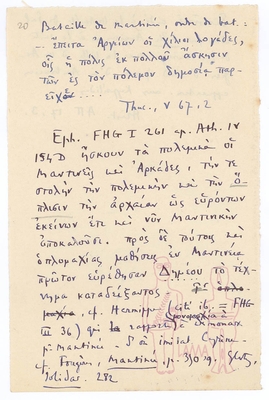 20 Bataille de Mantinée, ordre de bat. :
... ἔπειτα Ἀργείων οἱ χίλιοι λογάδες,
οἷς ἡ πόλις ἐκ πολλοῦ ἄσκησιν
τῶν ἐς τὸν πόλεμον δημοσίᾳ παρ-
εῖχε ....
Thuc., V 67, 2
Eph. FHG I 261 ap. Ath. IV
154 D ἤσκουν τὰ πολεμικὰ οἱ
Μαντινεῖς καὶ Ἀρκάδες, τήν τε
στολὴν τὴν πολεμικὴν καὶ τὴν ὅ
πλισιν τὴν ἀρχαίαν ὡς εὑρόντων
ἐκείνων ἔτι καὶ νῦν Μαντινικὴν
ἀποκαλοῦσι. πρὸς δὲ τούτοις καὶ
ὁπλομαχίας μαθήσεις ἐν Μαντινείᾳ
πρῶτον εὑρέθησαν Δημέου τὸ τέχ-
νημα καταδείξαντος
cf. Hermipp. (cité ib. = FHG
III 36) qui
Mantinée
cf. Fougères, Mantinée p. 350 Glotz,
Solidar. 282